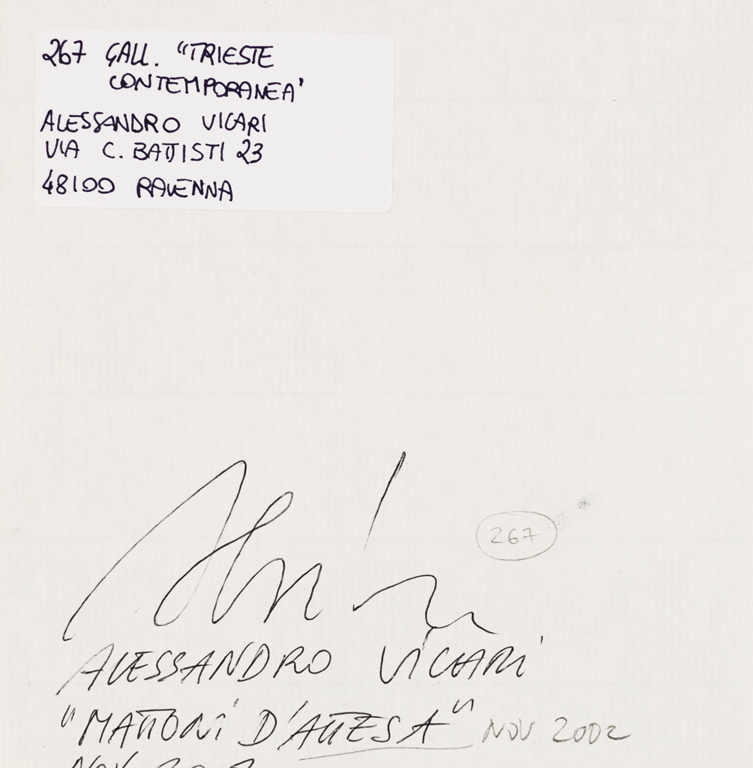 267 GALL. "TRIESTE
CONTEMPORANEA'
ALESSANDRO VICARI
VIA C. BATTISTI 23
48100 RAVENNA
267
ALESSANDRO VICARI
"MATTONI D'ATTESA" NOV 2002
NOV